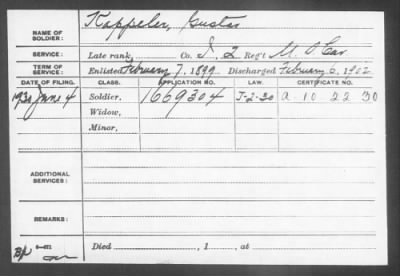 NAME OF SOLDIER: Kappeler, Gustav
SERVICE: Late rank, Co. I, 2 Reg't U.S. Cav
TERM OF SERVICE: Enlisted February 7, 1899 Discharged February 6, 1902
DATE OF FILING. CLASS. APPLICATION NO. LAW. CERTIFICATE NO.
1930 June 4 Soldier, 1659304 J-2-30 A 10 22 30
Widow,
Minor,
ADDITIONAL SERVICES:
REMARKS:
Died , 1 , at